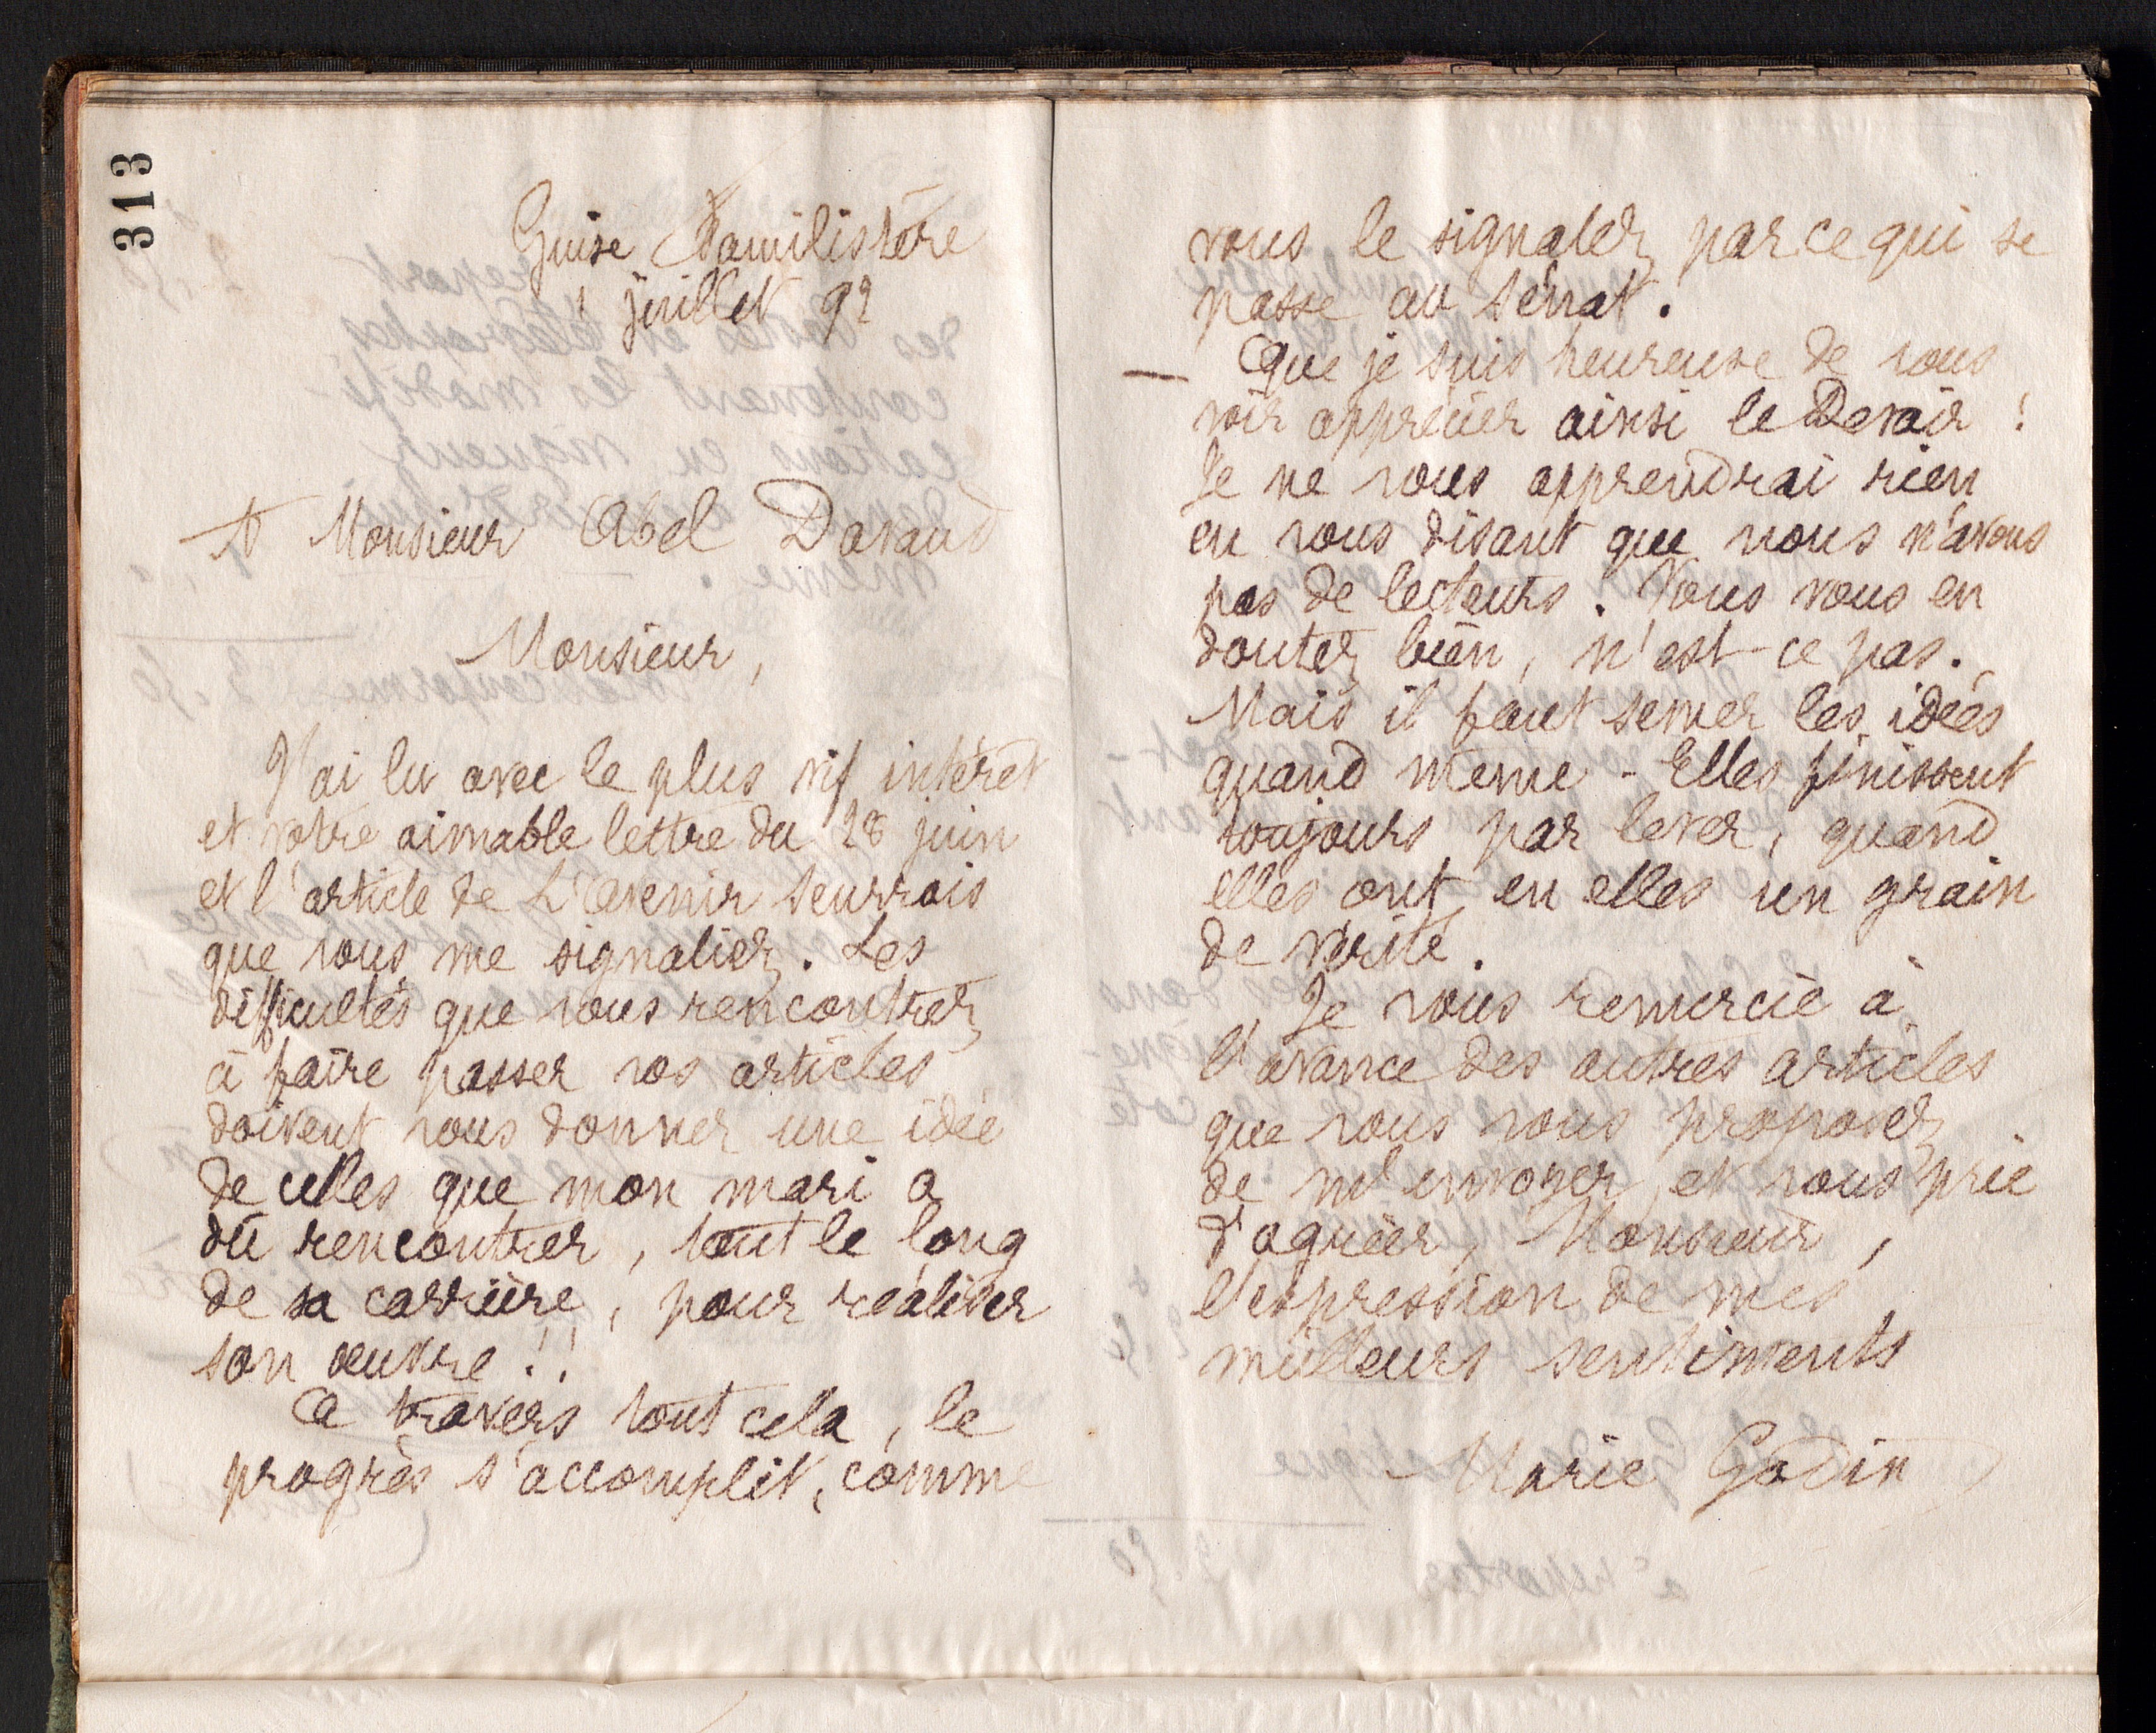 313
Guise Familistère
1 juillet 92
A Monsieur Abel Davaud
Monsieur,
J'ai lu avec le plus vif intérêt
et votre aimable lettre du 28 juin
et l'article de L'Avenir Seurrois
que vous me signaliez. Les
difficultés que vous rencontrez
à faire passer vos articles
doivent vous donner une idée
de celles que mon mari a
dû rencontrer, tout le long
de sa carrière, pour réaliser
son œuvre !!
A travers tout cela, le
progrès s'accomplit, comme
vous le signalez par ce qui se
passe au Sénat.
— Que je suis heureuse de vous
voir apprécier ainsi le Devoir !
Je ne vous apprendrai rien
en vous disant que nous n'avons
pas de lecteurs. Vous vous en
doutez bien, n'est-ce pas.
Mais il faut semer les idées
quand même - Elles finissent
toujours par lever, quand
elles ont en elles un grain
de vérité.
Je vous remercie à
l'avance des autres articles
que vous vous proposez
de m'envoyer et vous prie
d'agréer, Monsieur,
l'expression de mes
meilleurs sentiments
Marie Godin